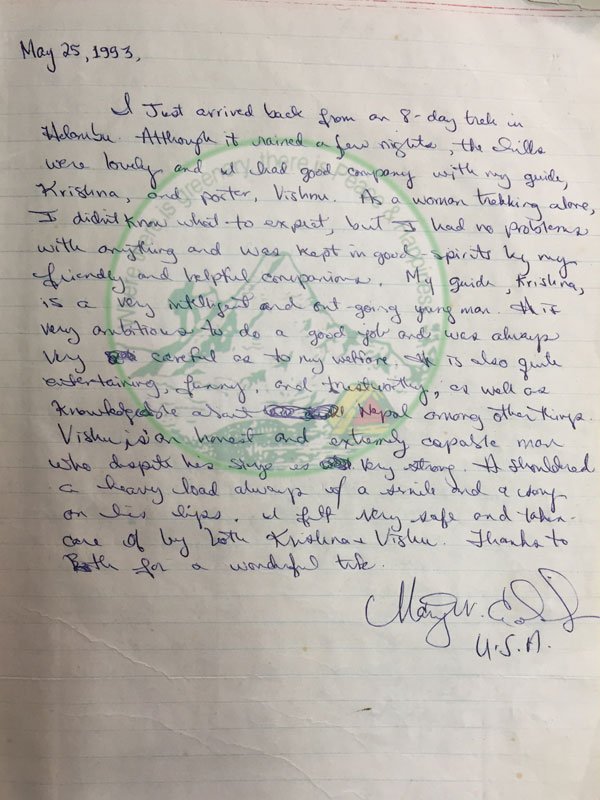 May 25, 1993,
I Just arrived back from an 8-day trek in
Helambu. Although it rained a few nights, the hills
were lovely and I had good company with my guide,
Krishna, and porter, Vishnu. As a woman trekking alone,
I didn't know what to expect, but I had no problems
with anything and was kept in good spirits by my
friendly and helpful companions. My guide, Krishna,
is a very intelligent and out-going young man. He is
very ambitious to do a good job and was always
very careful as to my welfare. He is also quite
entertaining, funny, and trustworthy, as well as
knowledgeable about Nepal among other things.
Vishnu, is an honest and extremely capable man
who despite his size is very strong. He shouldered
a heavy load always w/ a smile and a song
on his lips. I felt very safe and taken-
care of by both Krishna + Vishnu. Thanks to
Both for a wonderful trek.
Mary W.
U.S.A.
Where there is greenery, there is Peace & Happiness